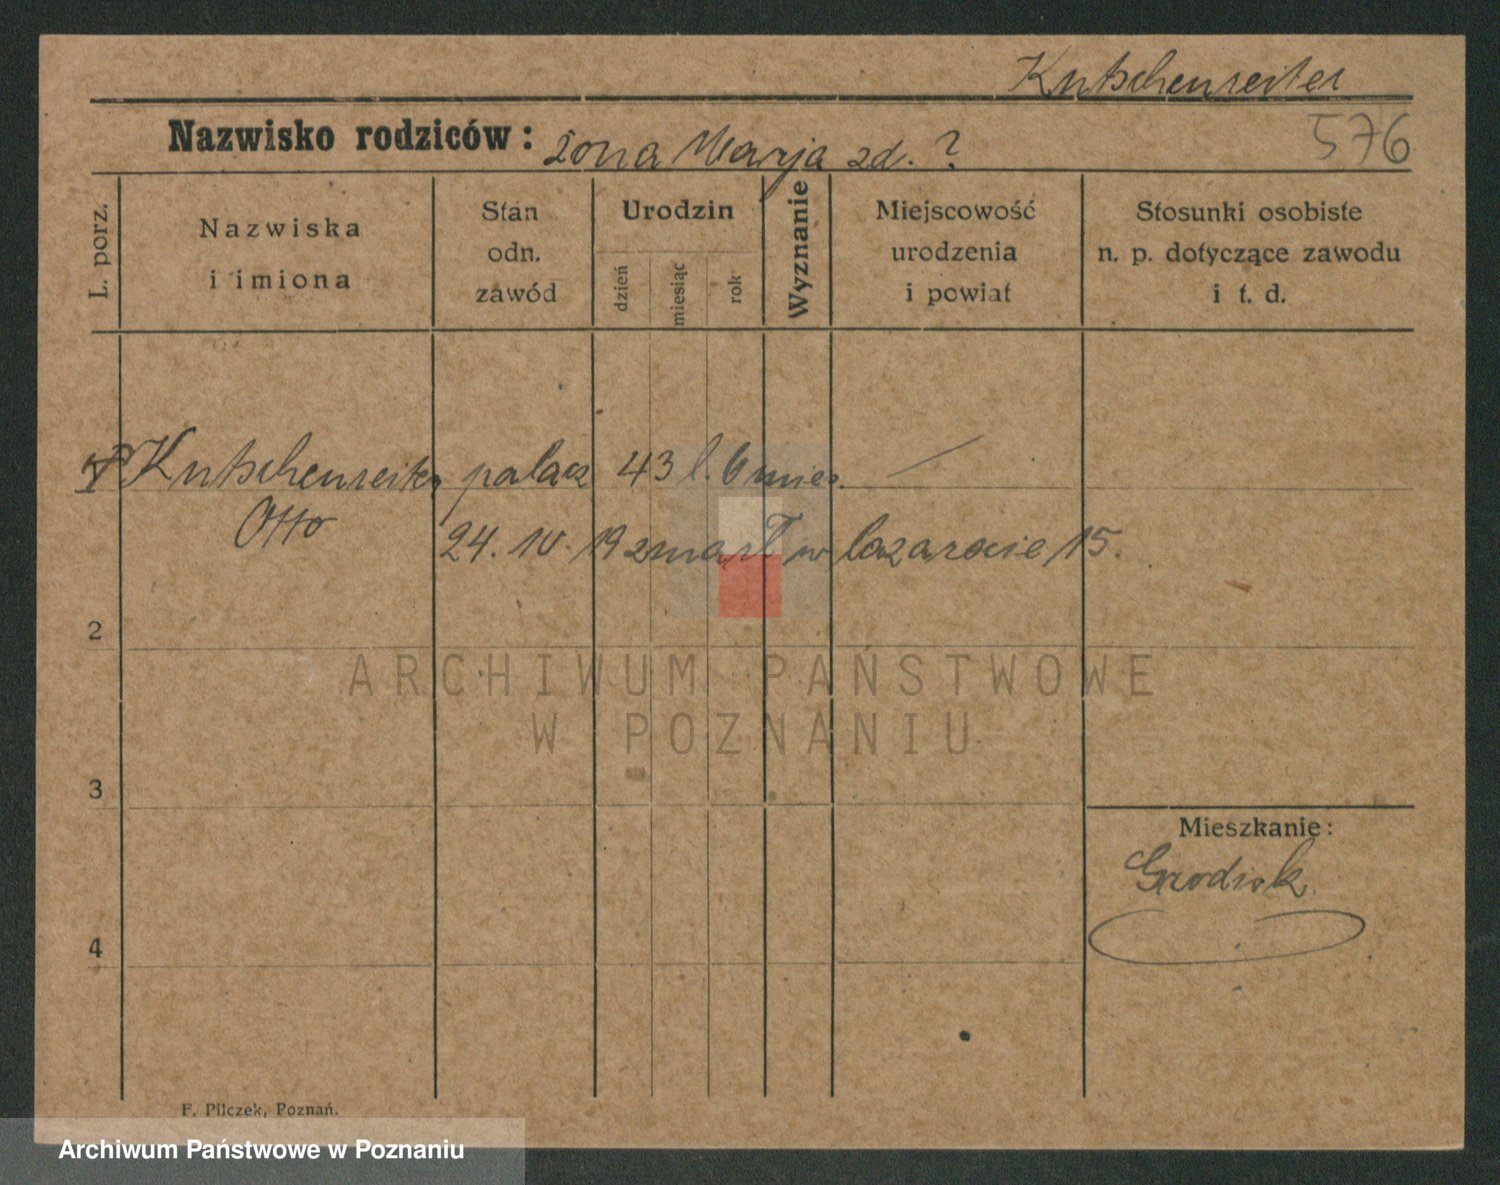 Kutschenreiter
Nazwisko rodziców: żona Marja zd. ?
576
L. porz.
Nazwiska
i imiona
Stan
odn.
zawód
Urodzin
dzień
miesiąc
rok
Wyznanie
Miejscowość
urodzenia
i powiat
Stosunki osobiste
n. p. dotyczące zawodu
i t. d.
Kutschenreiter palacz 43 l. 6 mies. —
Otto
24. 10. 19 zmarł w lazarecie 15.
2
ARCHIWUM PAŃSTWOWE
W POZNANIU
3
Mieszkanie:
Grodisk
4
F. Pilczek, Poznań.
Archiwum Państwowe w Poznaniu